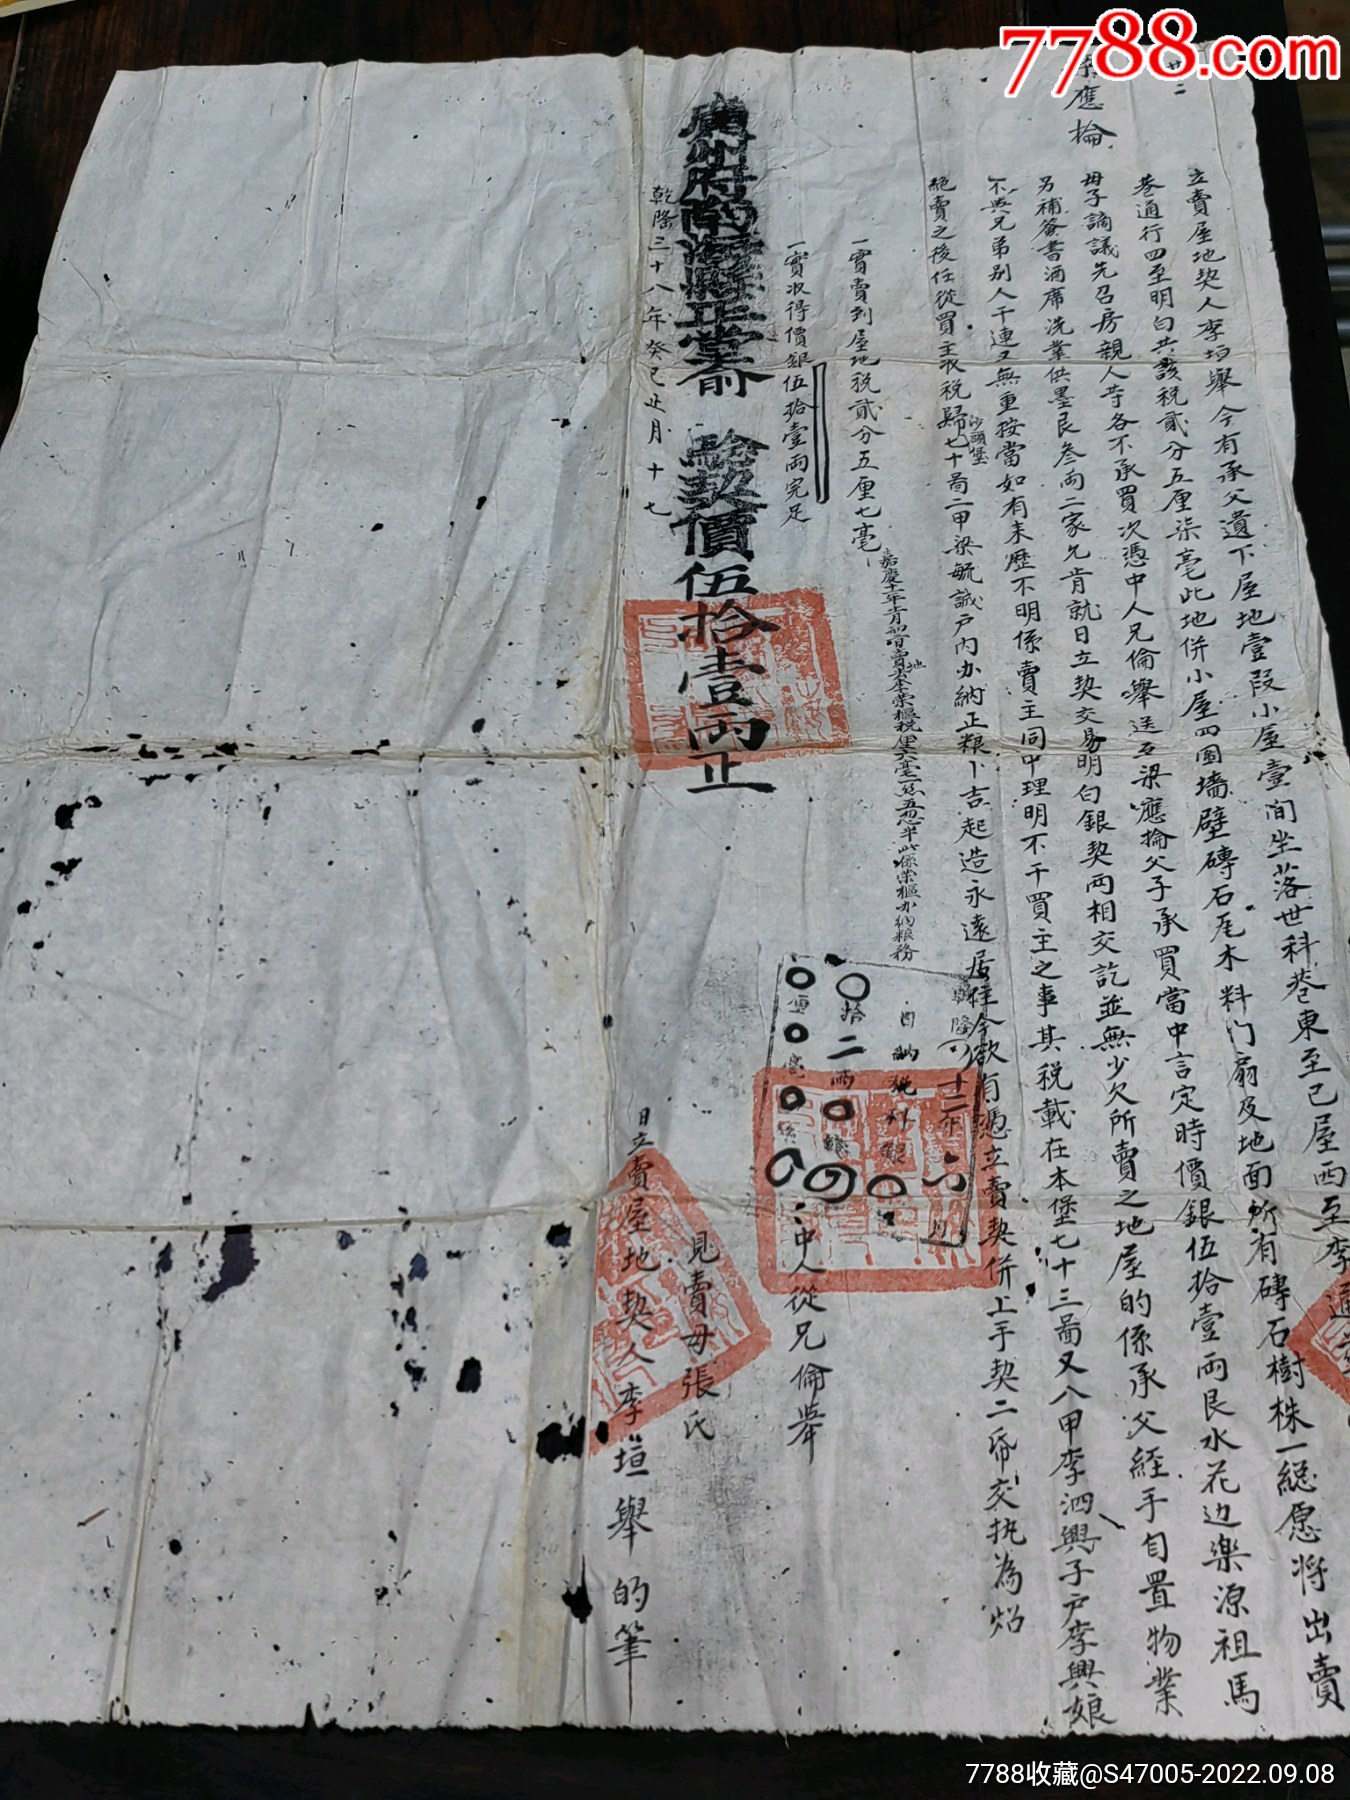 7788.com
廿二
應掄
立賣屋地契人李垣舉今有承父遺下屋地壹段小屋壹間坐落世科巷東至己屋西至李通
巷通行四至明白共該稅貳分五厘柒毫此地併小屋四圍墻壁磚石尾木料门扇及地面所有磚石樹株一總愿将出賣
母子謫議先召房親人等各不承買次憑中人兄倫舉送至梁應掄父子承買當中言定時價銀伍拾壹兩艮水花边樂源祖馬
另補簽書酒席洗業供墨艮叁両二家允肯就日立契交易明白銀契两相交訖並無少欠所賣之地屋的係承父經手自置物業
不與兄弟别人干連又無重按當如有来歷不明係賣主同中理明不干買主之事其税載在本堡七十三啚又八甲李泗興子户李興娘
絕賣之後任從買主收税歸沙頭堡七十啚二甲梁毓誠户内办納正粮卜吉起造永遠居住今欲有憑立賣契併上手契二帋交执為炤
一實賣到屋地税貳分五厘七毫
一實收得價銀伍拾壹兩完足
中人從兄倫舉
廣州府南海縣正堂 驗契價伍拾壹兩正
見賣母張氏
乾隆三十八年癸巳正月十七
日立賣屋地契人李垣舉的筆
7788收藏@S47005-2022.09.08